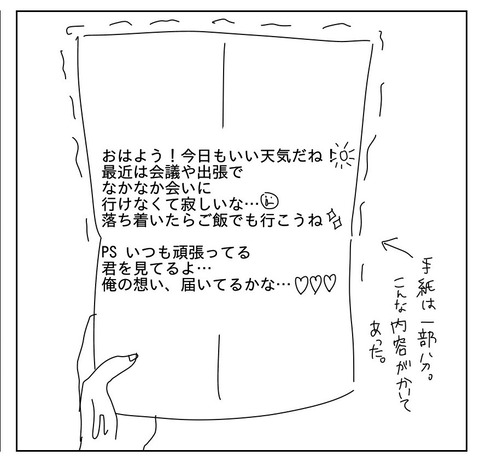 おはよう！今日もいい天気だね！
最近は会議や出張で
なかなか会いに
行けなくて寂しいな…
落ち着いたらご飯でも行こうね
PS いつも頑張ってる
君を見てるよ…
俺の想い、届いてるかな…♡♡♡
手紙は一部分。
こんな内容がかいて
あった。